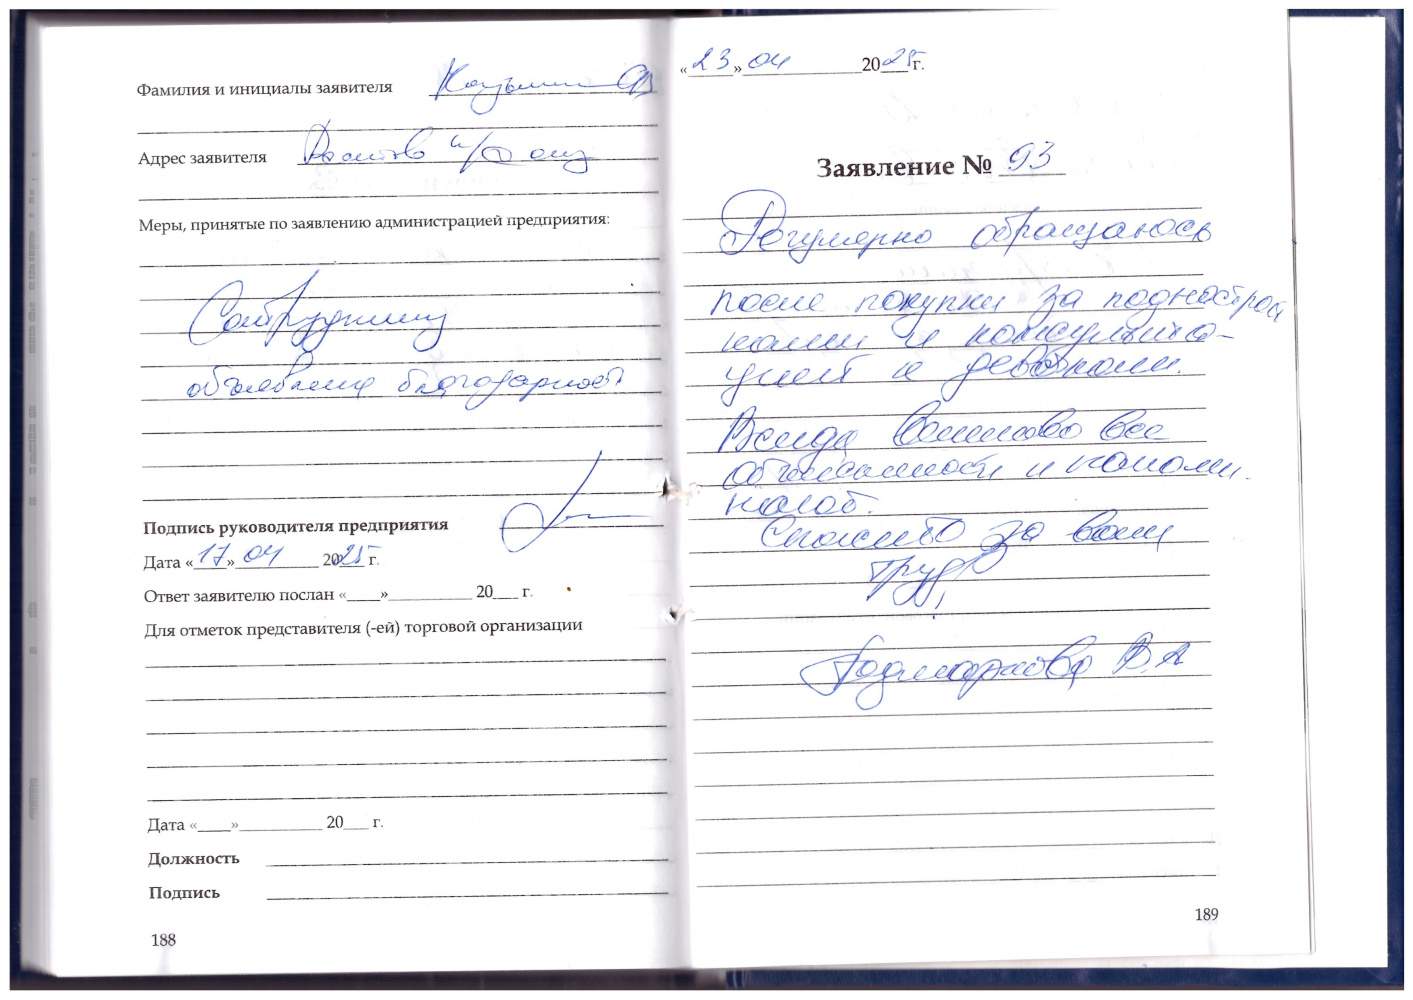 Фамилия и инициалы заявителя
Адрес заявителя Ростов н/Дону
Меры, принятые по заявлению администрацией предприятия:
Сотруднику
объявлена благодарность
Подпись руководителя предприятия
Дата «17» 04 2025 г.
Ответ заявителю послан «____»__________ 20___ г.
Для отметок представителя (-ей) торговой организации
Дата «____»__________ 20___ г.
Должность
Подпись
188
«23» 04 2025 г.
Заявление № 93
Регулярно обращаюсь
после покупки за поднастрой
ками и консульта-
цией к девочкам.
Всегда все
и
Спасибо за ваш
труд,
В.А
189